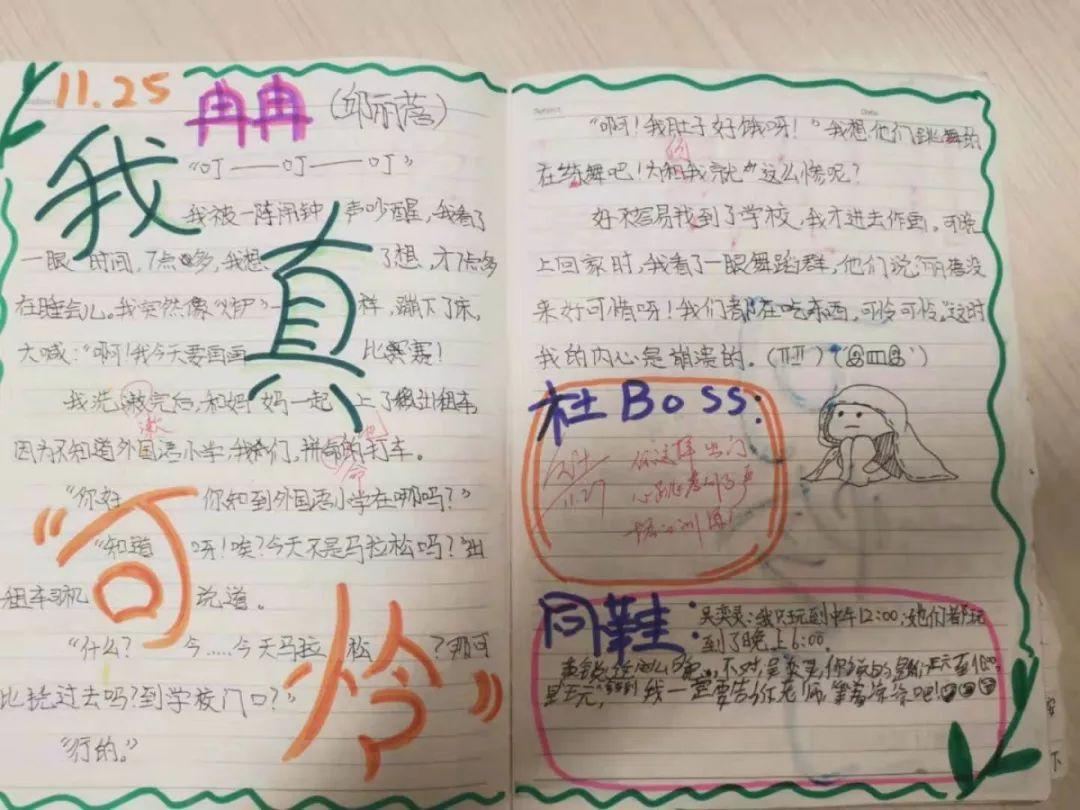 11.25 冉冉（邱丽蓓）
我真“可怜”
“叮——叮——叮”
我被一阵闹钟声吵醒，我看了
一眼时间，7点多，我想了想，才7点多
在睡会儿。我突然像“炉”一样，蹦下了床，
大喊：“啊！我今天要画画比赛赛！
我洗漱完后，和妈妈一起上了出租车，
因为不知道外国语小学，我们，拼命的打车。
“你好 你知到外国语小学在哪吗？”
“知道呀！唉？今天不是马拉松吗？”出
租车司机说道。
“什么？今……今天马拉松？那可
比绕过去吗？到学校门口？”
“行的。”
“啊！我肚子好饿呀！”我想他们跳舞的
在练舞吧！你和我就这么惨呢？
好不容易找到了学校，我才进去作画。可晚
上回家时，我看了一眼舞蹈群，他们说丽蓓没
来好可惜呀！我们都在吃东西，可怜可怜。”这时
我的内心是崩溃的。
社Boss：
11.27
你这样出门
同鞋：
吴奕灵：我只玩到中午12:00，她们都玩
到了晚上6:00。
不对，吴奕灵，你
我一定要告诉老师，等着